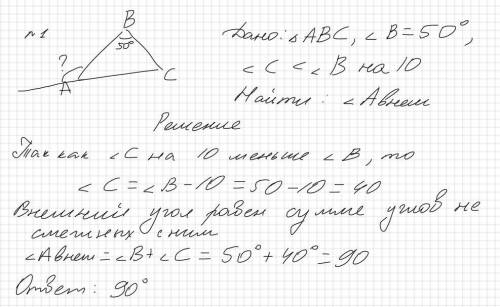 №1
B
50°
?
A
C
Дано: △ABC, ∠B=50°,
∠C < ∠B на 10
Найти: ∠Aвнеш
Решение
Так как ∠C на 10 меньше ∠B, то
∠C=∠B-10=50-10=40
Внешний угол равен сумме углов не
смежных с ним
∠Aвнеш=∠B+∠C=50°+40°=90
Ответ: 90°